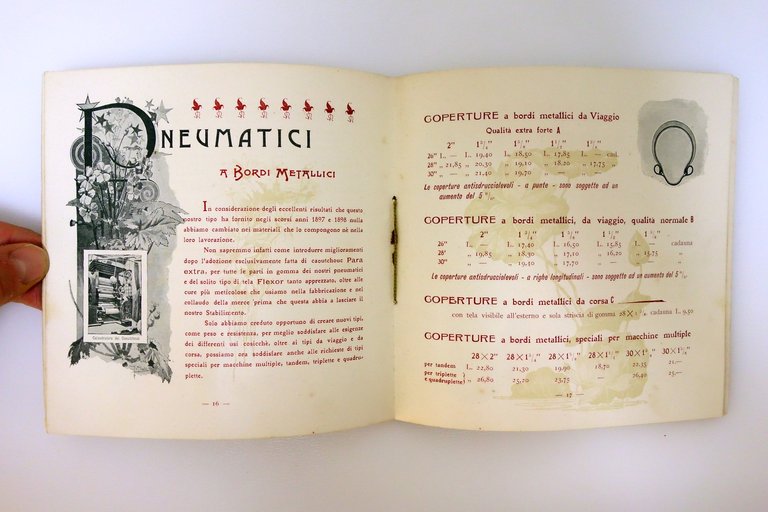 PNEUMATICI
A BORDI METALLICI
In considerazione degli eccellenti risultati che questo
nostro tipo ha fornito negli scorsi anni 1897 e 1898 nulla
abbiamo cambiato nei materiali che lo compongono nè nella
loro lavorazione.
Non sapremmo infatti come introdurre miglioramenti
dopo l'adozione esclusivamente fatta di caoutchouc Para
extra, per tutte le parti in gomma dei nostri pneumatici
e del solito tipo di tela Flexor tanto apprezzato, oltre alle
cure più meticolose che usiamo nella fabbricazione e nel
collaudo della merce prima che questa abbia a lasciare il
nostro Stabilimento.
Solo abbiamo creduto opportuno di creare nuovi tipi,
come peso e resistenza, per meglio soddisfare alle esigenze
dei differenti usi cosicchè, oltre ai tipi da viaggio e da
corsa, possiamo ora soddisfare anche alle richieste di tipi
speciali per macchine multiple, tandem, triplette e quadru-
plette.
— 16 —
COPERTURE a bordi metallici da Viaggio
Qualità extra forte A
2" 1 3/4" 1 5/8" 1 1/2" 1 3/8"
26" L. — L. 19,40 L. 18,50 L. 17,85 L. — cad.
28" L. 21,85 „ 20,30 „ 19,10 „ 18,20 „ 17,75 „
30" „ — „ 21,40 „ 19,70 „ — „ — „
Le coperture antisdrucciolevoli - a punte - sono soggette ad un
aumento del 5 %.
COPERTURE a bordi metallici, da viaggio, qualità normale B
2" 1 3/4" 1 5/8" 1 1/2" 1 3/8"
26" L. — L. 17,40 L. 16,50 L. 15,85 L. — cadauna
28" „ 19,85 „ 18,30 „ 17,10 „ 16,20 „ 15,75 „
30" „ — „ 19,40 „ 17,70 „ — „ — „
Le coperture antisdrucciolevoli - a righe longitudinali - sono soggette ad un aumento del 5 %.
COPERTURE a bordi metallici da corsa C
con tela visibile all'esterno e sola striscia di gomma 28 × 1 3/8" cadauna L. 9,50
COPERTURE a bordi metallici, speciali per macchine multiple
per tandem L. 22,80 21,30 19,90 18,70 22,35 21,—
per triplette
e quadruplette „ 26,80 25,20 23,75 — 26,40 25,—
— 17 —